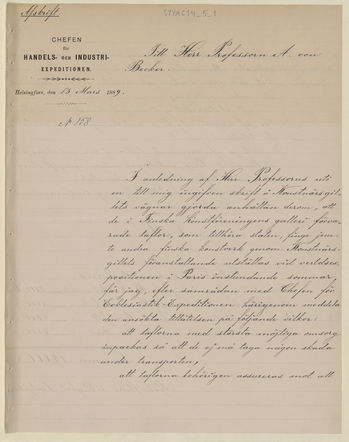 Afskrift.
STYAC14_5_1
CHEFEN
för
HANDELS- OCH INDUSTRI-
EXPEDITIONEN.
Helsingfors, den 13 Mars 1889.
N 158
Till Herr Professorn A. von
Becker.
I anledning af Herr Professorns uti
en till mig ingifven skrift å Konstnärsgil-
lets vägnar gjorda anhållan derom, att
de i Finska Konstföreningens galleri förva-
rade taflor, som tillhöra staten, finge jem-
te andra finska konstverk genom Konstnärs-
gillets föranstaltande utställas vid verldsex-
positionen i Paris instundande sommar,
får jag, efter samrådan med Chefen för
Ecklesiastik-Expeditionen härigenom meddela
den ansökta tillåtelsen på följande vilkor:
att taflorna med största möjliga omsorg
inpackas så att de ej må taga någon skada
under transporten,
att taflorna behörigen assureras mot all